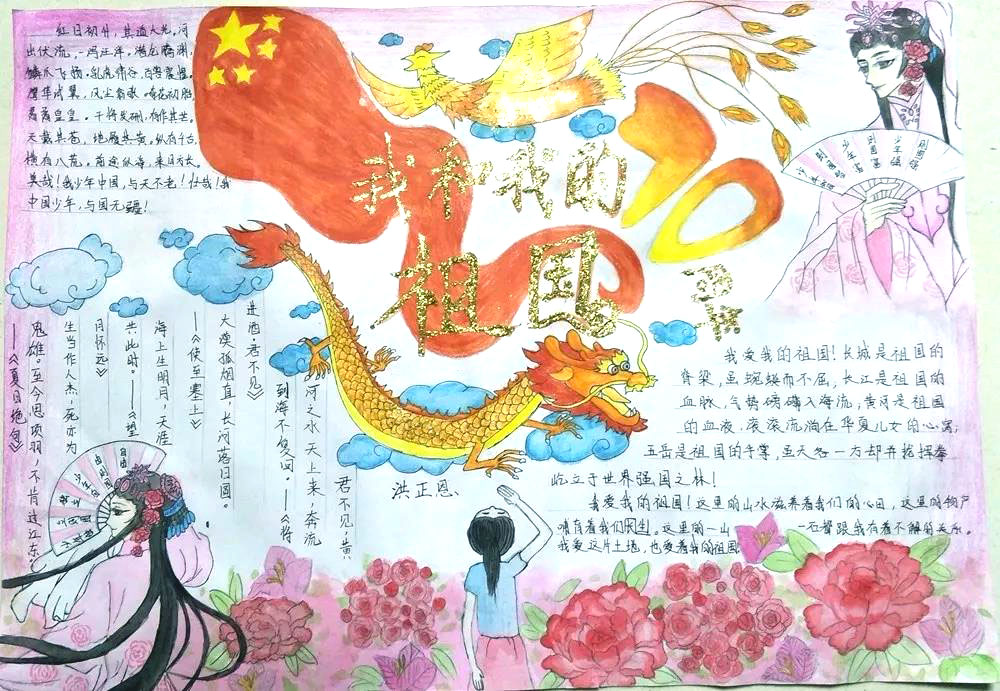 红日初升，其道大光，河
出伏流，一泻汪洋。潜龙腾渊，
鳞爪飞扬。乳虎啸谷，百兽震惶。
鹰隼试翼，风尘翕张。奇花初胎，
矞矞皇皇。干将发硎，有作其芒。
天戴其苍，地履其黄。纵有千古，
横有八荒。前途似海，来日方长。
美哉！我少年中国，与天不老！壮哉！我
中国少年，与国无疆！
我和我的
祖国
70
君不见，黄
河之水天上来，奔流
到海不复回。——《将
进酒·君不见》
大漠孤烟直，长河落日圆。
——《使至塞上》
海上生明月，天涯
共此时。——《望
月怀远》
生当作人杰，死亦为
鬼雄。至今思项羽，不肯过江东。
——《夏日绝句》
洪正恩
我爱我的祖国！长城是祖国的
脊梁，虽蜿蜒而不屈，长江是祖国的
血脉，气势磅礴入海流，黄河是祖国
的血液，滚滚流淌在华夏儿女的心窝；
五岳是祖国的手掌，虽天各一方却并拢挥拳
屹立于世界强国之林！
我爱我的祖国！这里的山水滋养着我们的心田，这里的物产
哺育着我们民生。这里的一山一石都跟我有着不解的关系。
我爱这片土地，也爱着我的祖国